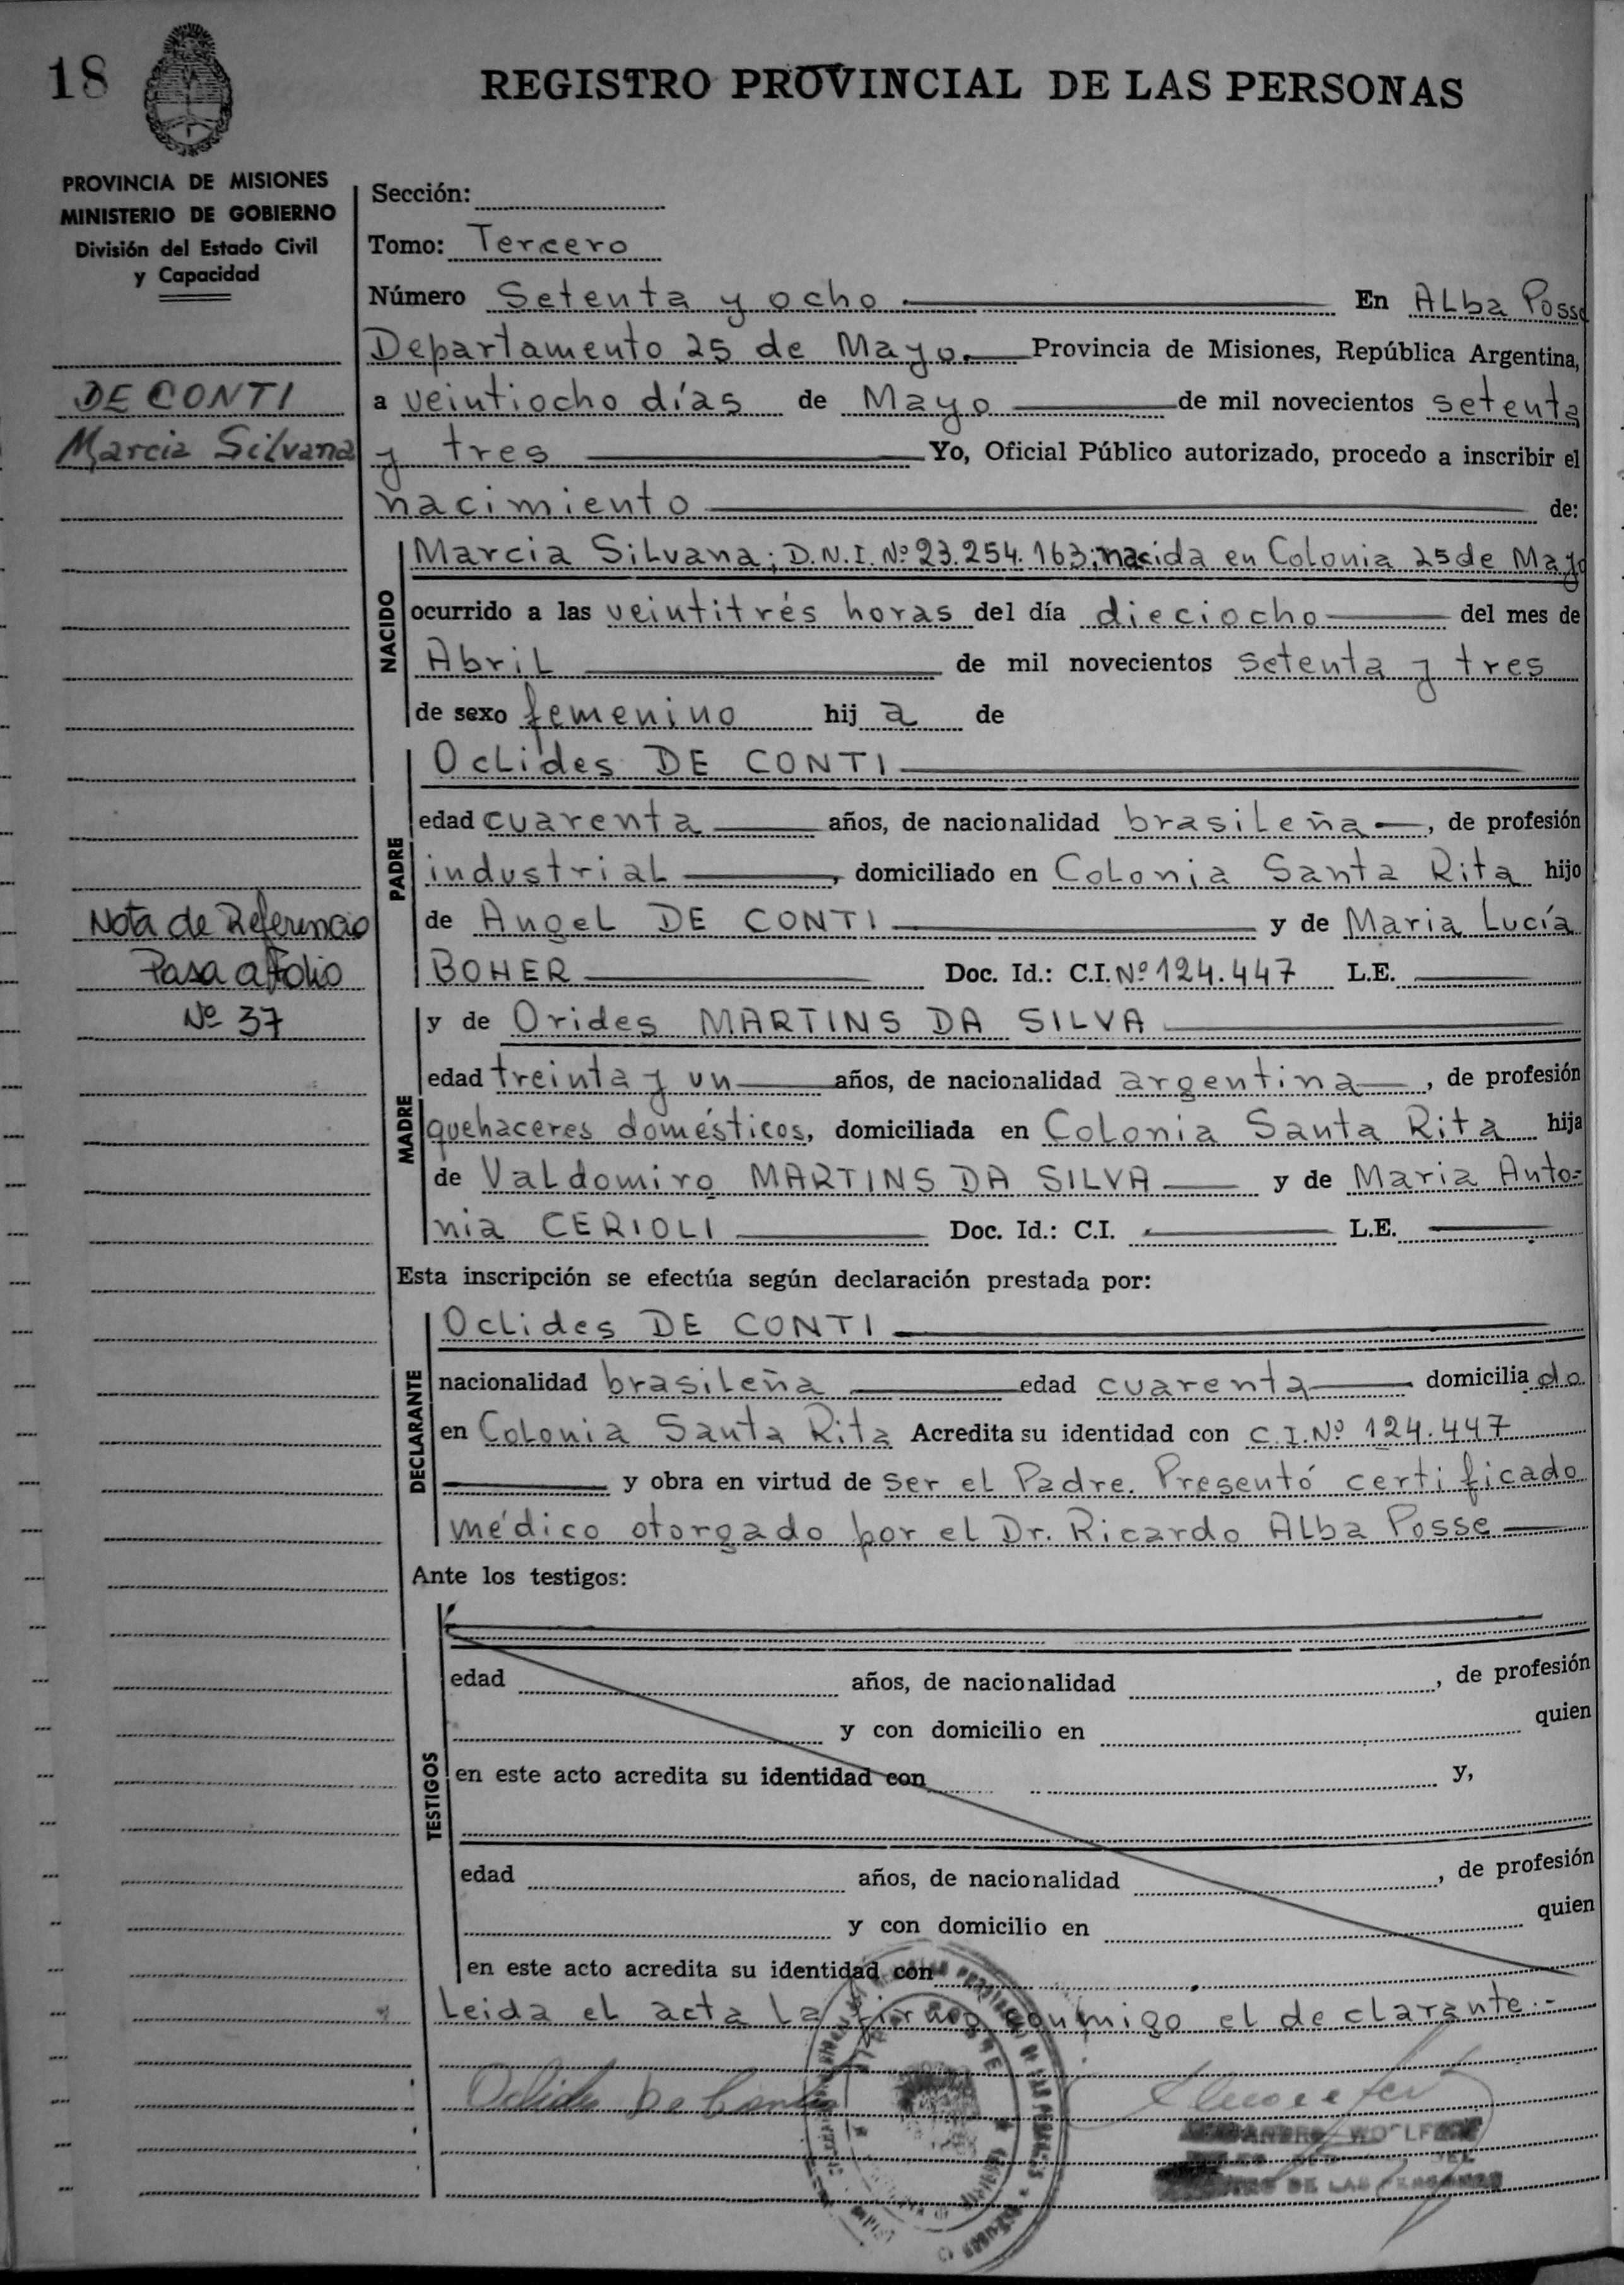 18
REGISTRO PROVINCIAL DE LAS PERSONAS
PROVINCIA DE MISIONES
MINISTERIO DE GOBIERNO
División del Estado Civil
y Capacidad
DE CONTI
Marcia Silvana
Nota de Referencia
Pasa a Folio
Nº 37
Sección:
Tomo: Tercero
Número Setenta y ocho En Alba Posse
Departamento 25 de Mayo. Provincia de Misiones, República Argentina,
a veintiocho días de Mayo de mil novecientos setenta
y tres Yo, Oficial Público autorizado, procedo a inscribir el
nacimiento de:
NACIDO
Marcia Silvana; D.N.I. Nº 23.254.163; nacida en Colonia 25 de Mayo
ocurrido a las veintitrés horas del día dieciocho del mes de
Abril de mil novecientos setenta y tres
de sexo femenino hij a de
PADRE
Oclides DE CONTI
edad cuarenta años, de nacionalidad brasileña, de profesión
industrial, domiciliado en Colonia Santa Rita hijo
de Angel DE CONTI y de Maria Lucía
BOHER Doc. Id.: C.I. Nº 124.447 L.E.
MADRE
y de Orides MARTINS DA SILVA
edad treinta y un años, de nacionalidad argentina, de profesión
quehaceres domésticos, domiciliada en Colonia Santa Rita hija
de Valdomiro MARTINS DA SILVA y de Maria Anto-
nia CERIOLI Doc. Id.: C.I. L.E.
Esta inscripción se efectúa según declaración prestada por:
DECLARANTE
Oclides DE CONTI
nacionalidad brasileña edad cuarenta domicilia do
en Colonia Santa Rita Acredita su identidad con C.I. Nº 124.447
y obra en virtud de ser el Padre. Presentó certificado
médico otorgado por el Dr. Ricardo Alba Posse
Ante los testigos:
TESTIGOS
edad años, de nacionalidad , de profesión
y con domicilio en quien
en este acto acredita su identidad con y,
edad años, de nacionalidad , de profesión
y con domicilio en quien
en este acto acredita su identidad con
Leida el acta la firma conmigo el declarante.-
Oclides De Conti
DE LAS PERSONAS